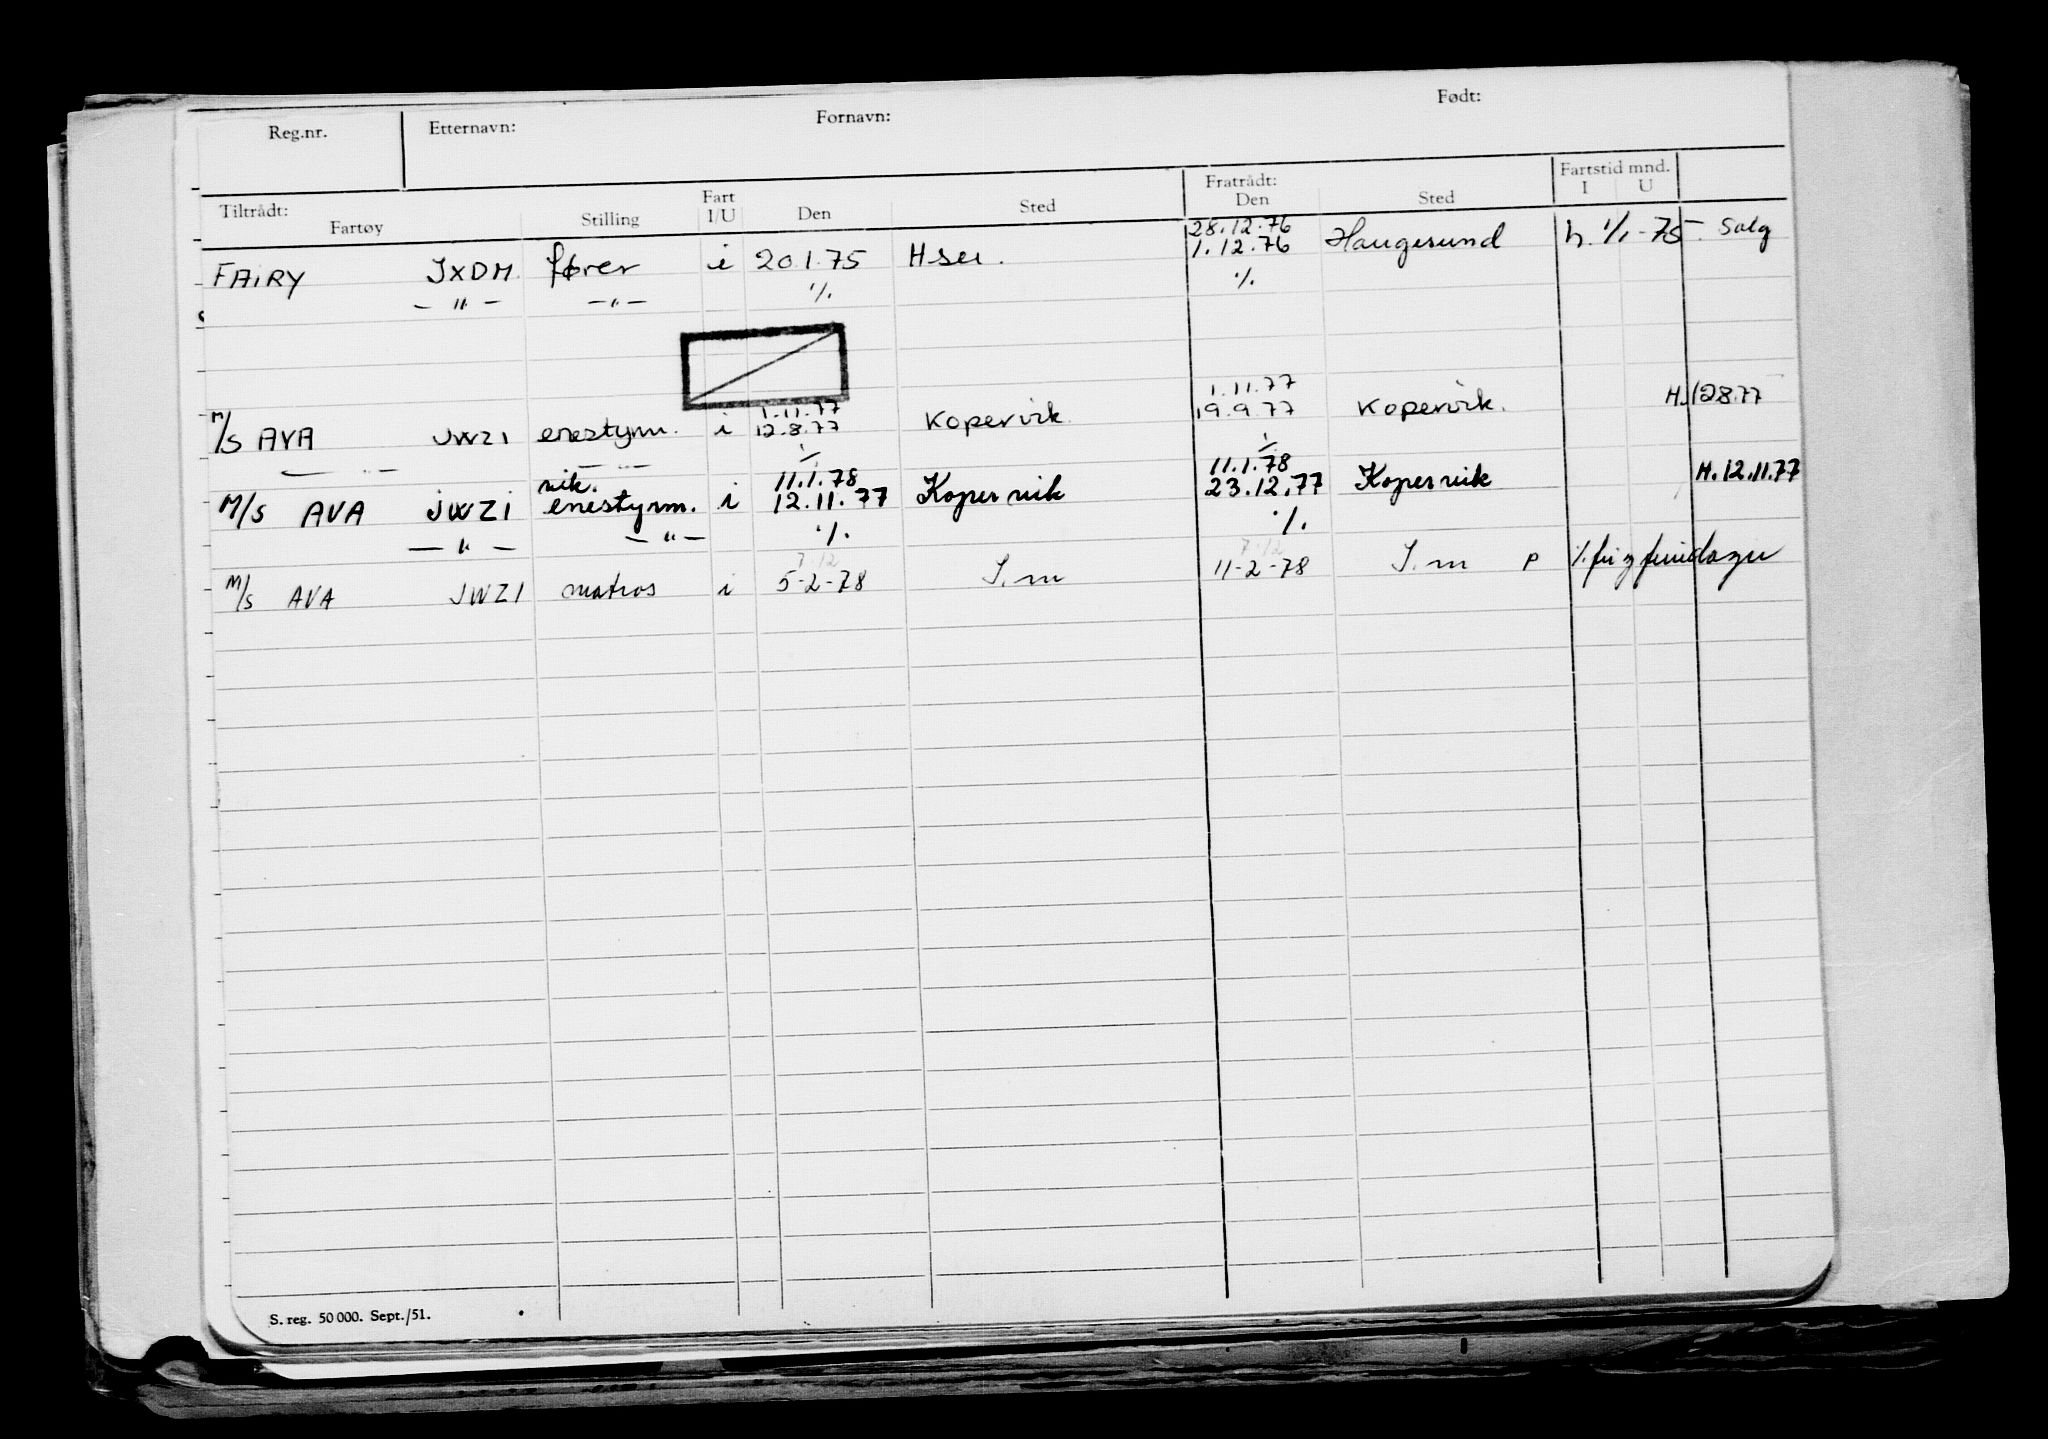 Reg.nr. Etternavn: Fornavn: Født:
Tiltrådt: Fartøy Stilling Fart I/U Den Sted Fratrådt: Den Sted Fartstid mnd. I U
28.12.76
FAIRY JXDM fører i 20.1.75 Hsu. 1.12.76 Haugesund h. 1/1-75 - Salg
— " — — " — ·/. ·/.
1.11.77 1.11.77
M/S AVA JWZI enestyrm. i 12.8.77 Kopervik 19.9.77 Kopervik. H.12877
— " — — " — ·/. ·/.
vik. 11.1.78 11.1.78
M/S AVA JWZI enestyrm. i 12.11.77 Kopervik 23.12.77 Kopervik H.12.11.77
— " — — " — ·/. ·/.
7.12 7.12
M/S AVA JWZI matros i 5-2-78 S.m 11-2-78 S.m P ·/.
S. reg. 50 000. Sept./51.